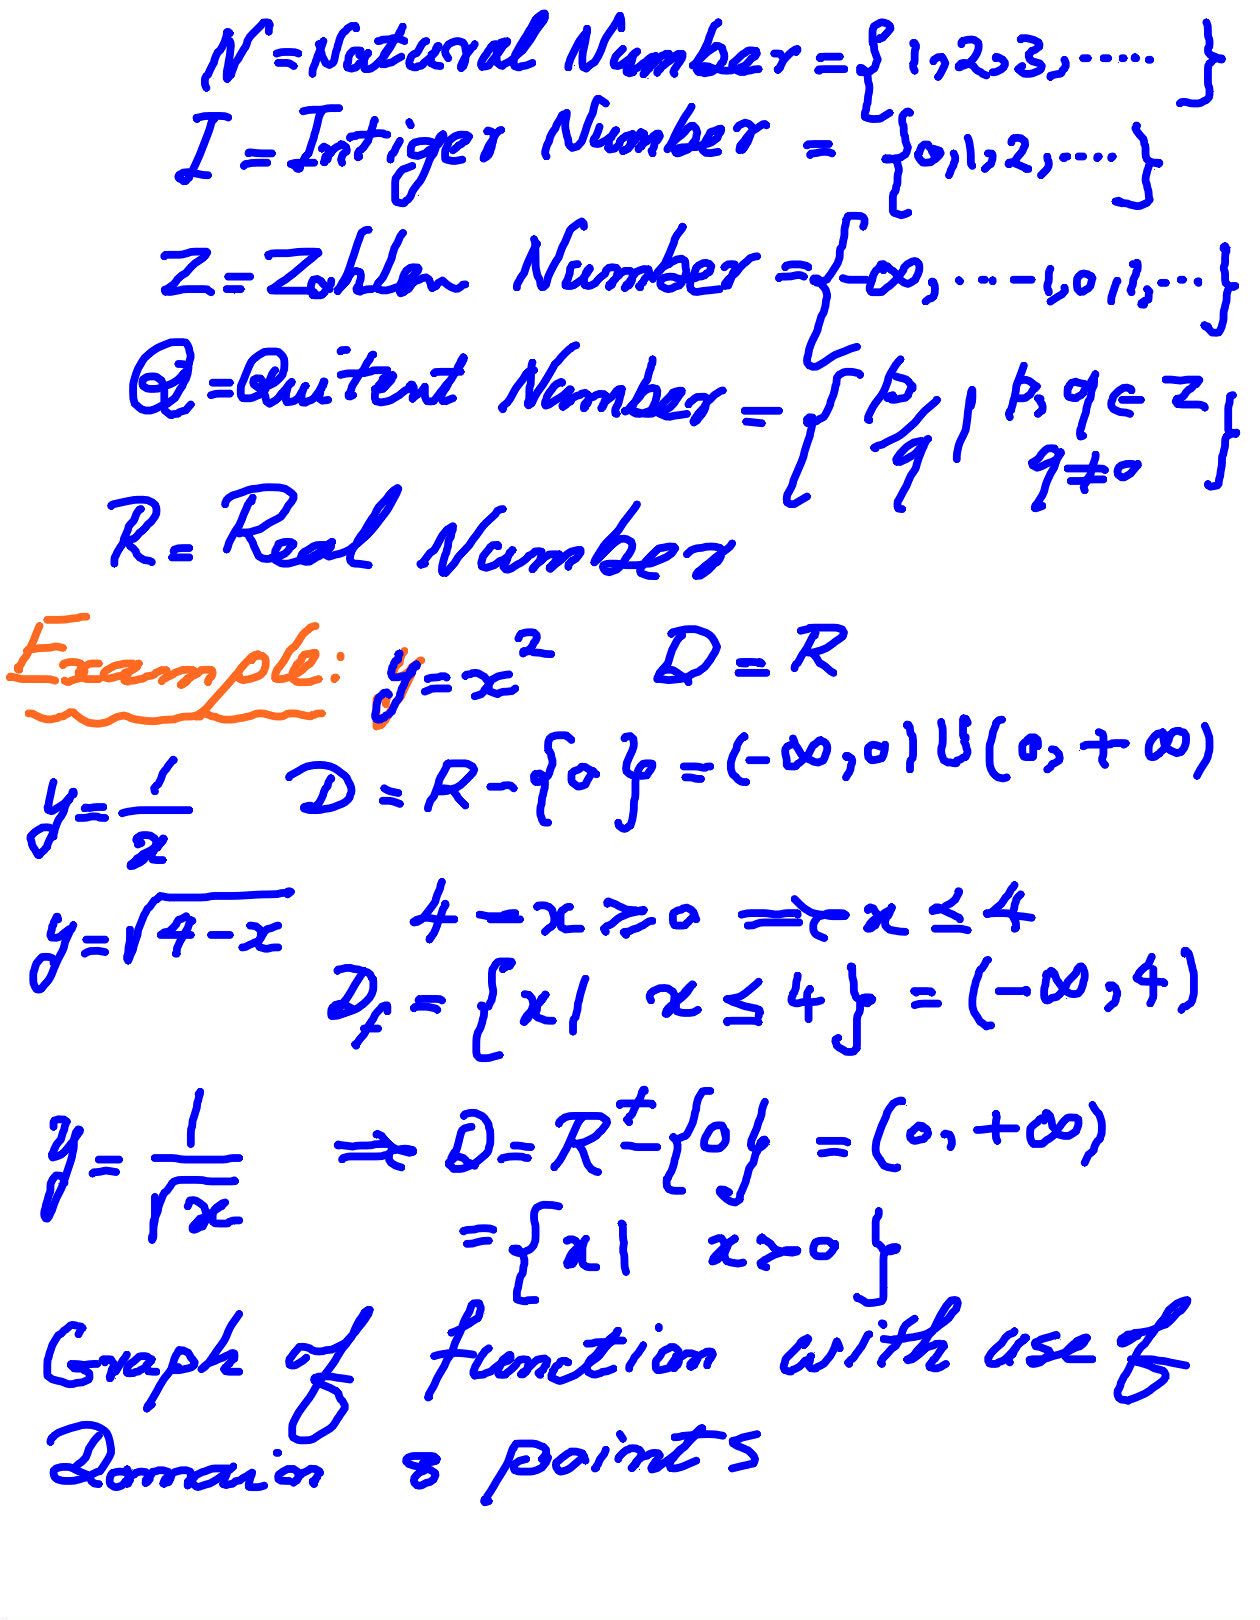 N = Natural Number = { 1, 2, 3, ...... }
I = Intiger Number = { 0, 1, 2, .... }
Z = Zahlen Number = { -∞, ... -1, 0, 1, ... }
Q = Quitent Number = { p/q | p, q ∈ Z q ≠ 0 }
R = Real Number
Example: y = x² D = R
y = 1/x D = R - {0} = (-∞, 0) ∪ (0, +∞)
y = √(4-x) 4 - x ≥ 0 ⇒ x ≤ 4
D_f = { x | x ≤ 4 } = (-∞, 4)
y = 1/√x ⇒ D = R⁺ - {0} = (0, +∞)
= { x | x > 0 }
Graph of function with use of
Domain & points